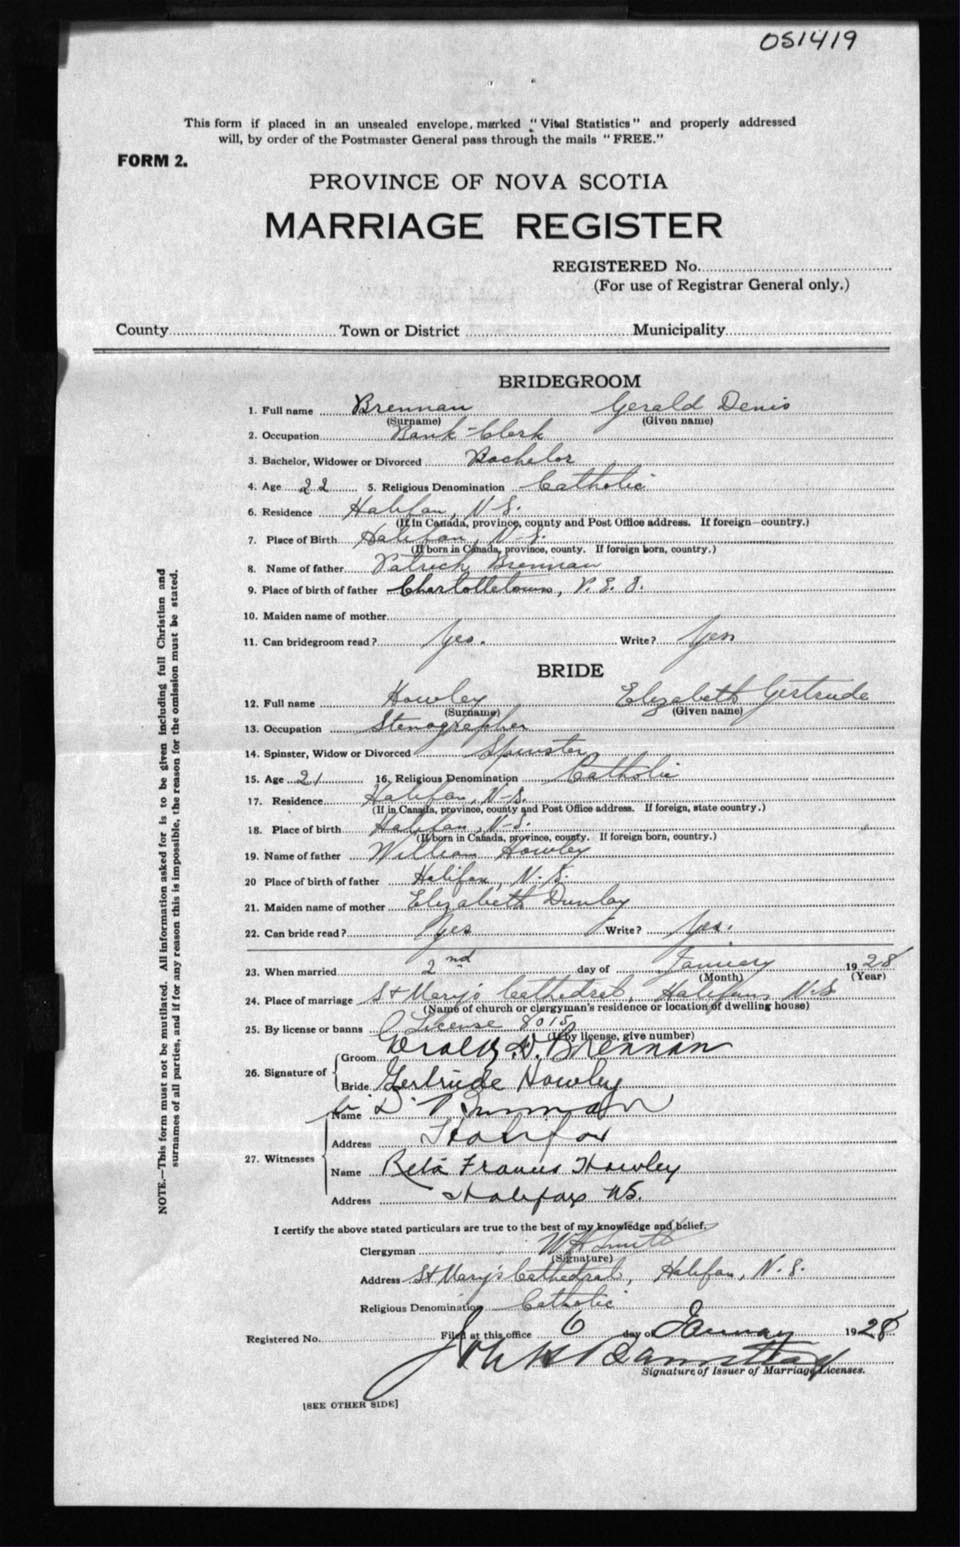 051419
This form if placed in an unsealed envelope, marked "Vital Statistics" and properly addressed
will, by order of the Postmaster General pass through the mails "FREE."
FORM 2.
PROVINCE OF NOVA SCOTIA
MARRIAGE REGISTER
REGISTERED No.
(For use of Registrar General only.)
County Town or District Municipality
BRIDEGROOM
1. Full name Brennan Gerald Denis
(Surname) (Given name)
2. Occupation Bank-Clerk
3. Bachelor, Widower or Divorced Bachelor
4. Age 22 5. Religious Denomination Catholic
6. Residence Halifax, N.S.
(If in Canada, province, county and Post Office address. If foreign—country.)
7. Place of Birth Halifax, N.S.
(If born in Canada, province, county. If foreign born, country.)
8. Name of father Patrick Brennan
9. Place of birth of father Charlottetown, P.E.I.
10. Maiden name of mother
11. Can bridegroom read? Yes. Write? Yes
BRIDE
12. Full name Howley Elizabeth Gertrude
(Surname) (Given name)
13. Occupation Stenographer
14. Spinster, Widow or Divorced Spinster
15. Age 21 16. Religious Denomination Catholic
17. Residence Halifax, N-S.
(If in Canada, province, county and Post Office address. If foreign, state country.)
18. Place of birth Halifax, N-S.
(If born in Canada, province, county. If foreign born, country.)
19. Name of father William Howley
20 Place of birth of father Halifax, N.S.
21. Maiden name of mother Elizabeth Dunlay
22. Can bride read? Yes Write? Yes.
23. When married 2nd day of January 1928
(Month) (Year)
24. Place of marriage St Mary's Cathedral, Halifax, N.S
(Name of church or clergyman's residence or location of dwelling house)
25. By license or banns License 8015
(If by license, give number)
26. Signature of Groom Gerald D. Brennan
Bride Gertrude Howley
27. Witnesses Name
Address Halifax
Name Rita Francis Howley
Address Halifax NS.
I certify the above stated particulars are true to the best of my knowledge and belief.
Clergyman W H Smith
(Signature)
Address St Mary's Cathedral, Halifax, N.S.
Religious Denomination Catholic
Registered No. Filed at this office 6 day of January 1928
Signature of Issuer of Marriage Licenses.
[SEE OTHER SIDE]
NOTE.—This form must not be mutilated. All information asked for is to be given including full Christian and
surnames of all parties, and if for any reason this is impossible, the reason for the omission must be stated.